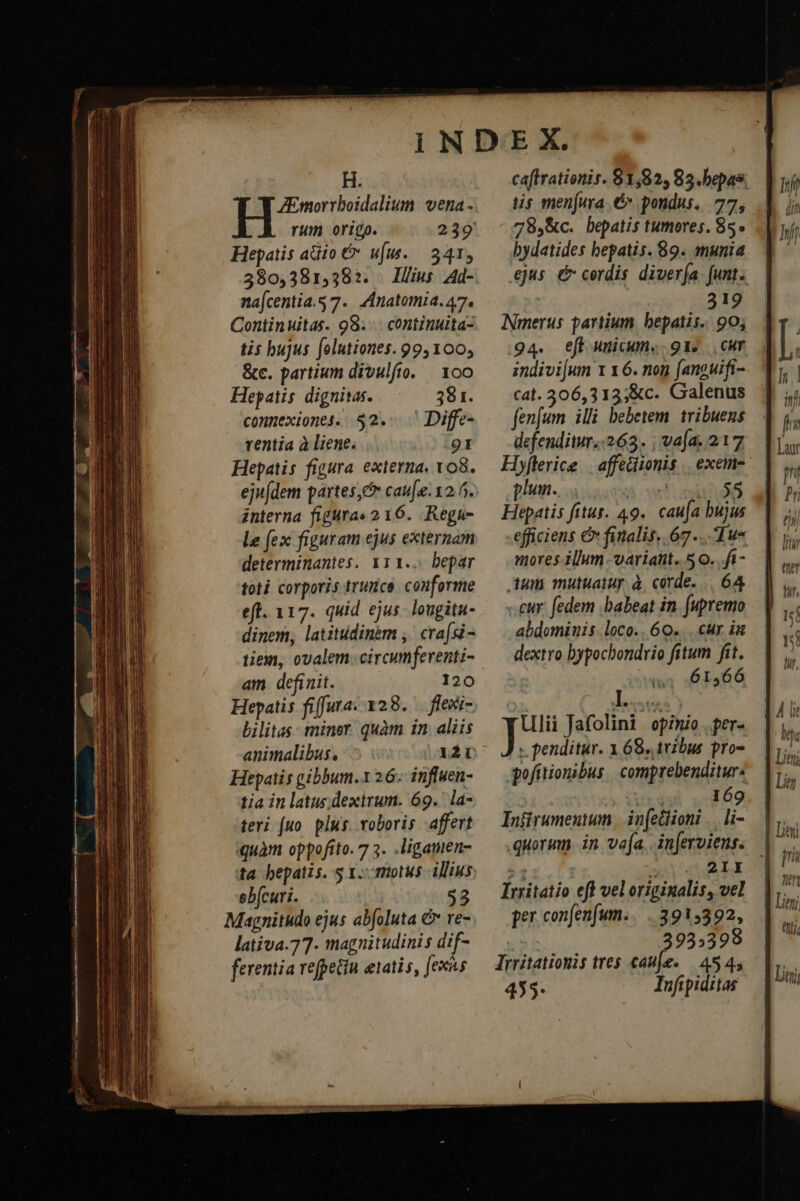 INDEX.
H.
HÆmorrhoidalium vena-
rum origo. 239
Hepatis actio & usus. 341,
380,381,382. Illius Ad-
nascentia.57. Anatomia.47.
Continuitas. 98. continuita-
tis hujus solutiones. 99,100,
&c. partium divulsio. 100
Hepatis dignitas. 381.
connexiones. 52. Diffe-
rentia à liene. 91
Hepatis figura externa. 108.
ejusdem partes,& causæ. 126.
interna figura 216. Regu-
læ sex figuram ejus externam
determinantes. 111. hepar
toti corporis trunco conforme
est. 117. quid ejus longitu-
dinem, latitudinem, crassi-
tiem, ovalem circumferenti-
am definit. 120
Hepatis fissura. 128. flexi-
bilitas minor quàm in aliis
animalibus, 121
Hepatis gibbum. 126. influen-
tia in latus dextrum. 69. la-
teri suo plus roboris affert
quàm opposito. 73. ligamen-
ta hepatis. 51. motus illius
obscuri. 53
Magnitudo ejus absoluta & re-
lativa.77. magnitudinis dif-
ferentia respectu ætatis, sexûs
castrationis. 81,82, 83. hepa-
tis mensura & pondus. 77,
78,&c. hepatis tumores. 85.
hydatides hepatis. 89. munia
ejus & cordis diversa sunt.
319
Nmerus partium hepatis. 90,
94. est unicum. 91. cur
indivisum 116. non sanguifi-
cat. 306,313,&c. Galenus
sensum illi hebetem tribuens
defenditur. 263. vasa. 217
Hysterice affectionis exem-
plum. 55
Hepatis situs. 49. causa hujus
efficiens & finalis. 67. Tu-
mores illum variant. 50. si-
tum mutuatur à corde. 64
cur sedem habeat in supremo
abdominis loco. 60. cur in
dextro hypochondrio situm sit.
61,66
I.
JUlii Jasolini opinio per-
penditur. 168. tribus pro-
positionibus comprehenditur.
169
Instrumentum insectioni li-
quorum in vasa inserviens.
211
Irritatio est vel originalis, vel
per consensum. 391,392,
393,398
Irritationis tres causæ. 454,
455. Insipiditas